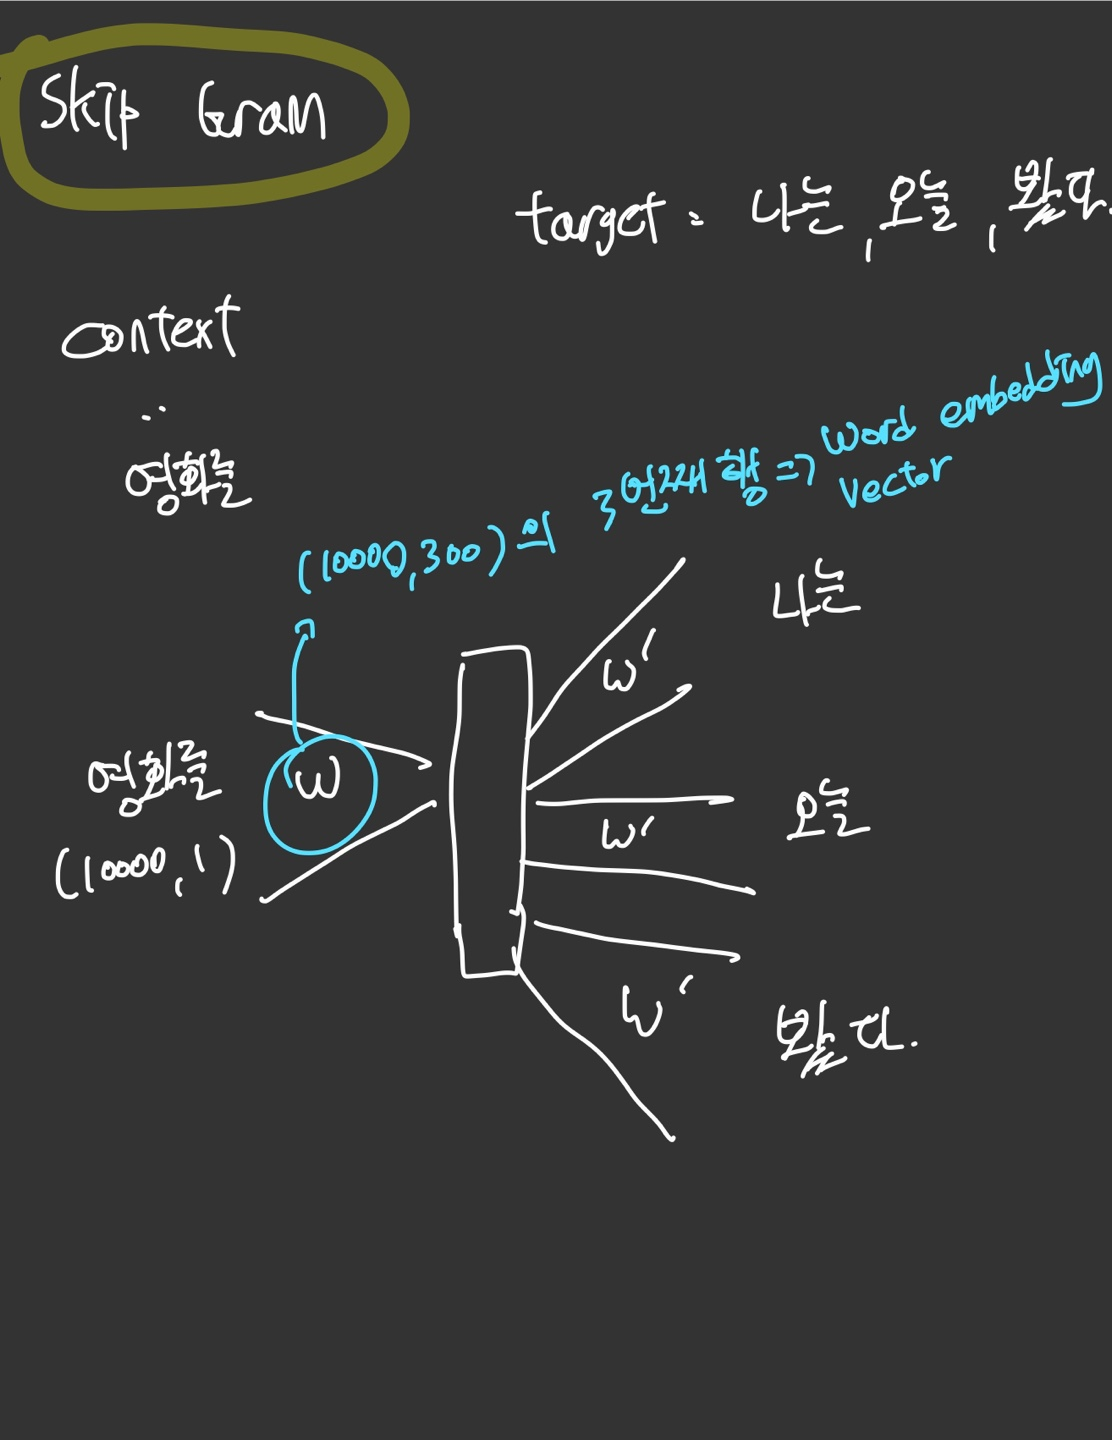 Skip Gram
target = 나는, 오늘, 봤다.
context
:
영화를
(10000,300)의 3번째 행 => word embedding
vector
나는
w'
영화를
w
(10000,1)
w'
오늘
w'
봤다.